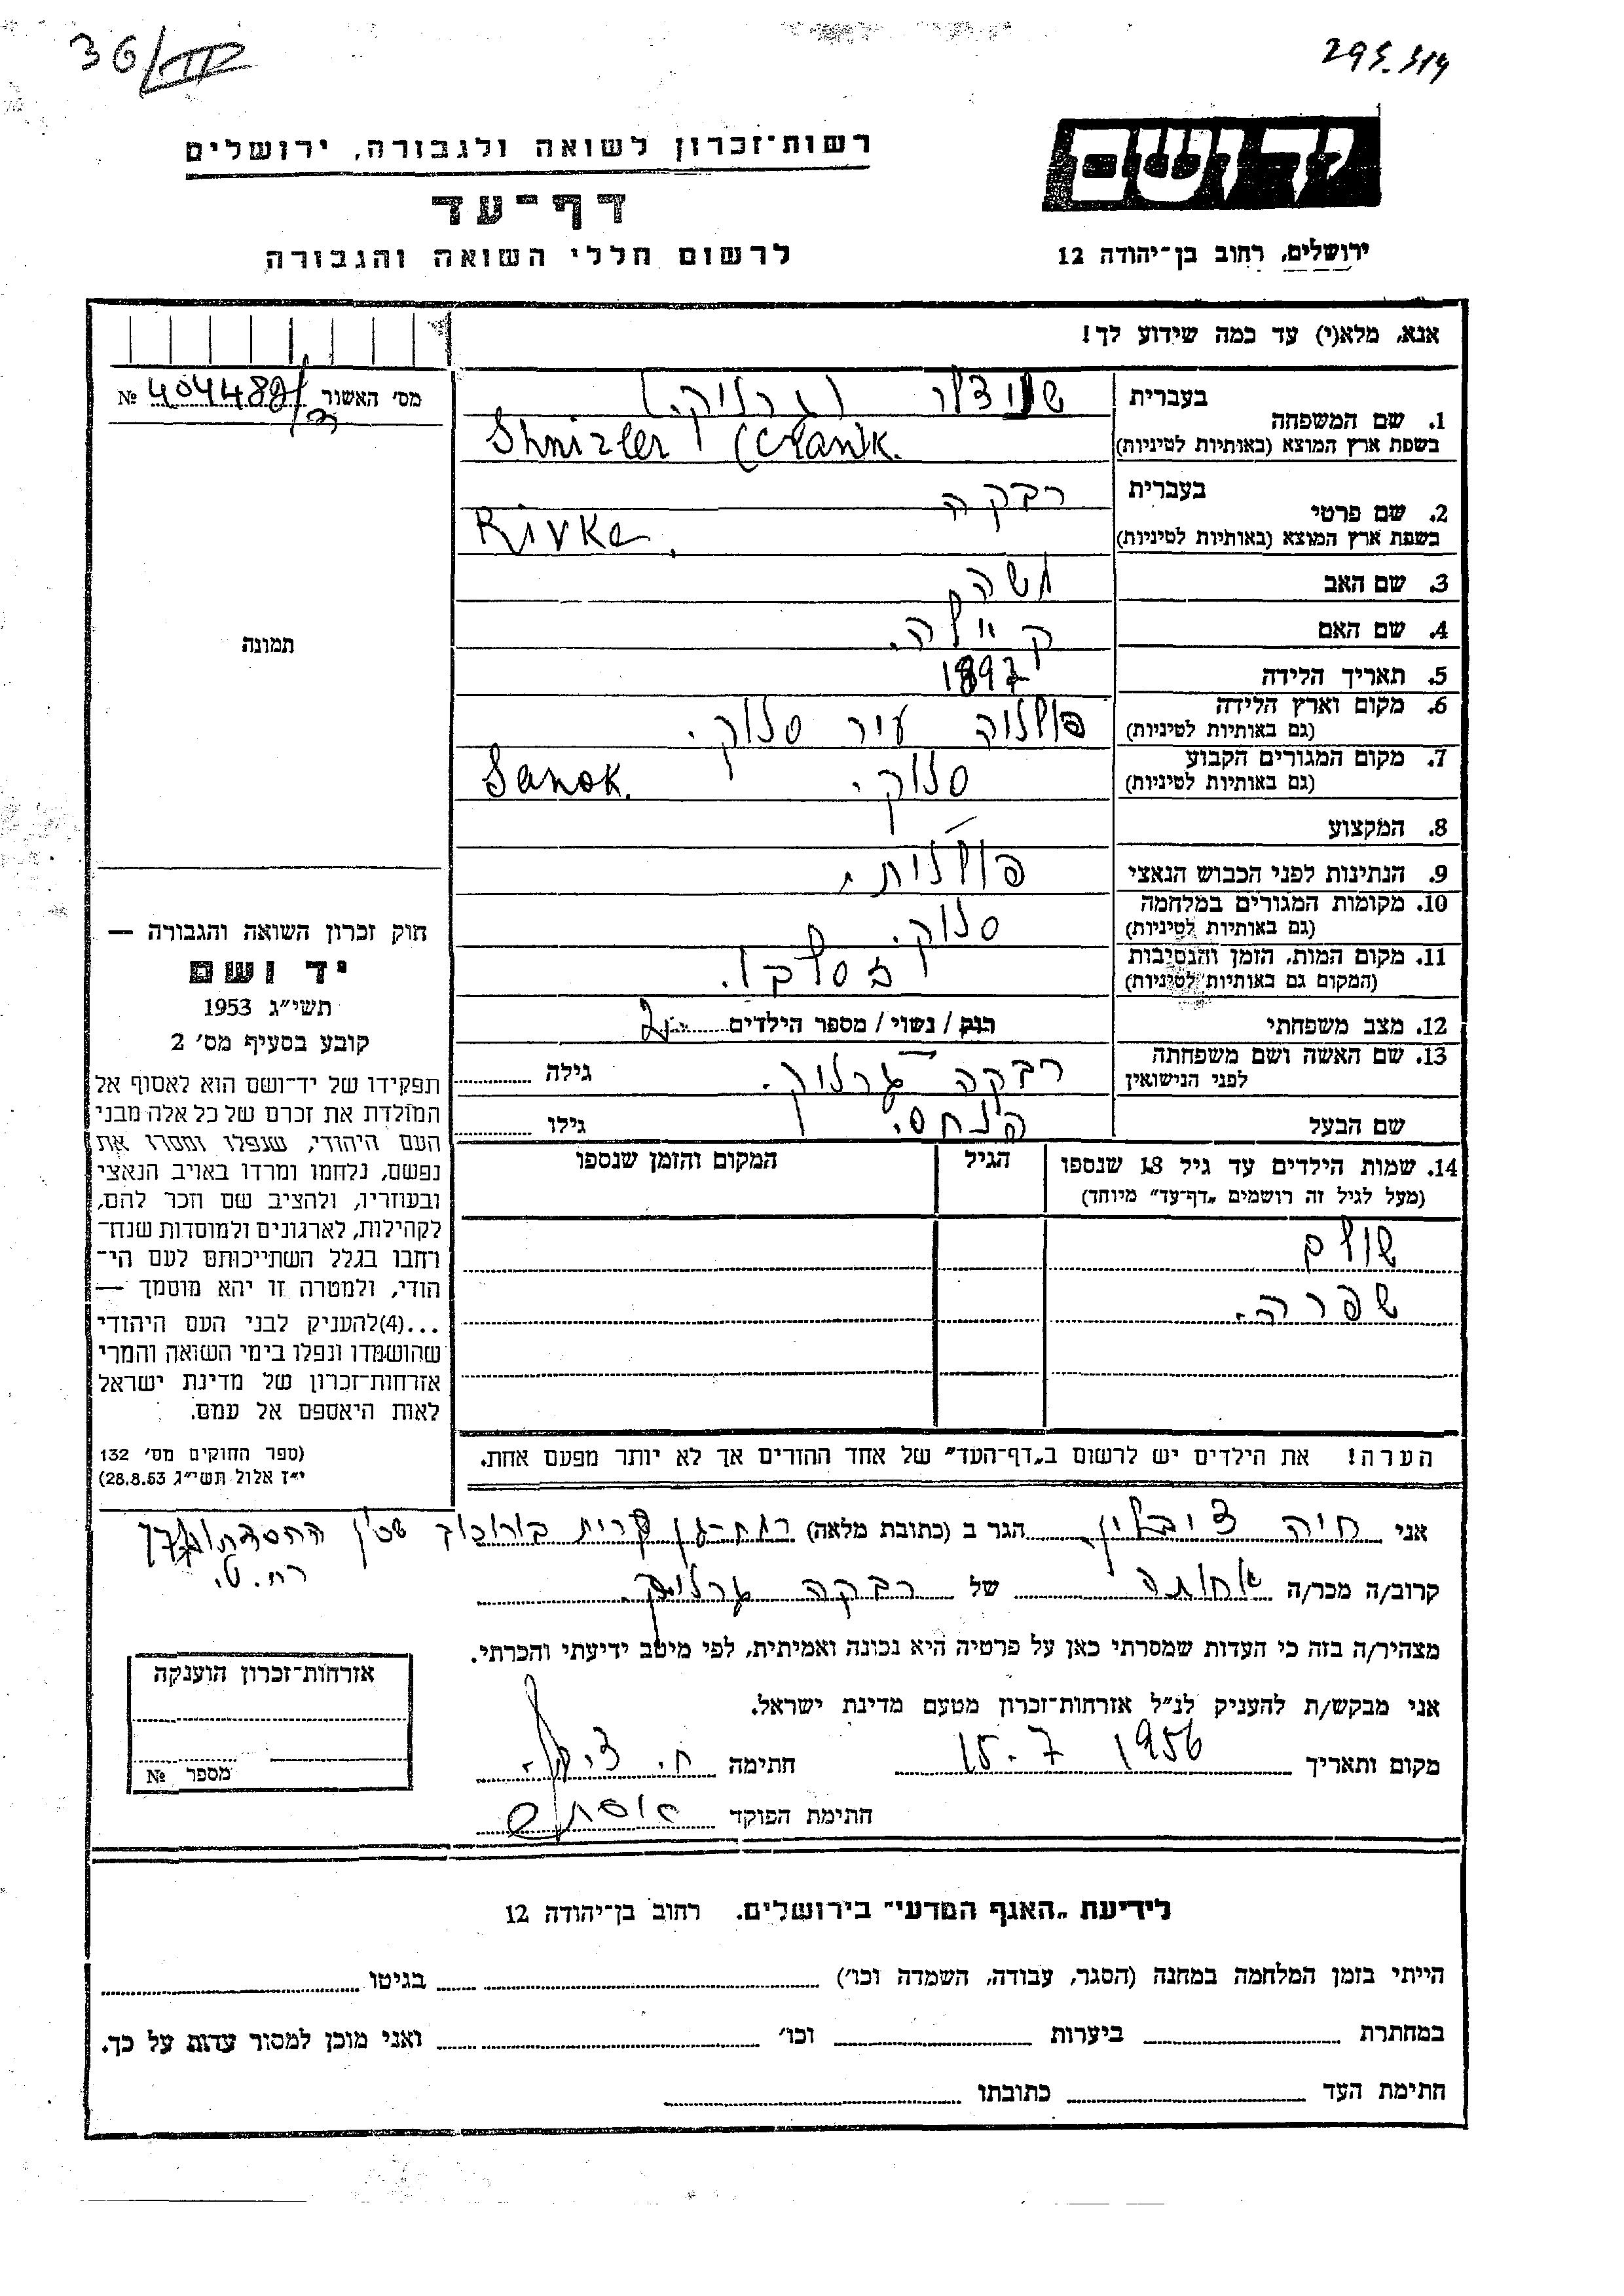 36/
295.314
יד ושם
רשות־זכרון לשואה ולגבורה, ירושלים
דף־עד
לרשום חללי השואה והגבורה
ירושלים, רחוב בן־יהודה 12
אנא, מלא(י) עד כמה שידוע לך!
מס׳ האשור № 404488/
1. שם המשפחה
בעברית
בשפת ארץ המוצא (באותיות לטיניות) Shnizler
2. שם פרטי
בעברית רבקה
בשפת ארץ המוצא (באותיות לטיניות) Rivka
3. שם האב משה
4. שם האם
5. תאריך הלידה 1897
6. מקום וארץ הלידה פולניה עיר סנוק.
(גם באותיות לטיניות)
7. מקום המגורים הקבוע סנוק. Sanok.
(גם באותיות לטיניות)
8. המקצוע —
9. הנתינות לפני הכבוש הנאצי פולנית.
10. מקומות המגורים במלחמה סנוק.
(גם באותיות לטיניות)
11. מקום המות, הזמן והנסיבות
(המקום גם באותיות לטיניות)
12. מצב משפחתי רווק / נשוי / מספר הילדים 2
13. שם האשה ושם משפחתה רבקה גרניק. גילה
לפני הנישואין
שם הבעל פנחס. גילו
14. שמות הילדים עד גיל 18 שנספו הגיל המקום והזמן שנספו
(מעל לגיל זה רושמים „דף־עד״ מיוחד)
שולם
שפרה.
הערה! את הילדים יש לרשום ב„דף־העד״ של אחד ההורים אך לא יותר מפעם אחת.
תמונה
חוק זכרון השואה והגבורה —
יד ושם
תשי״ג 1953
קובע בסעיף מס׳ 2
תפקידו של יד־ושם הוא לאסוף אל
המולדת את זכרם של כל אלה מבני
העם היהודי, שנפלו ומסרו את
נפשם, נלחמו ומרדו באויב הנאצי
ובעוזריו, ולהציב שם וזכר להם,
לקהילות, לארגונים ולמוסדות שנח־
רחבו בגלל השתייכותם לעם הי־
הודי, ולמטרה זו יהא מוסמך —
...(4)להעניק לבני העם היהודי
שהושמדו ונפלו בימי השואה והמרי
אזרחות־זכרון של מדינת ישראל
לאות היאספם אל עמם.
(ספר החוקים מס׳ 132
י״ז אלול תשי״ג 28.8.53)
אני חיה הגר ב (כתובת מלאה) רמת־גן קרית בורוכוב
קרוב/ה מכר/ה אחותה של רבקה גרניק.
מצהיר/ה בזה כי העדות שמסרתי כאן על פרטיה היא נכונה ואמיתית, לפי מיטב ידיעתי והכרתי.
אני מבקש/ת להעניק לנ״ל אזרחות־זכרון מטעם מדינת ישראל.
מקום ותאריך 15.7 1956 חתימה
חתימת הפוקד
אזרחות־זכרון הוענקה
מספר №
לידיעת „האגף המדעי״ בירושלים. רחוב בן־יהודה 12
הייתי בזמן המלחמה במחנה (הסגר, עבודה, השמדה וכו׳) בגיטו
במחתרת ביערות וכו׳ ואני מוכן למסור עדות על כך.
חתימת העד כתובתו